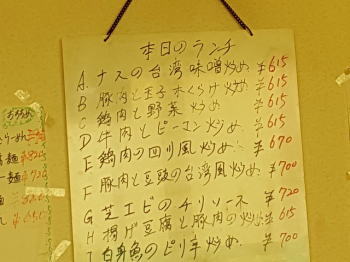 本日のランチ
A ナスの台湾味噌炒め ¥615
B 豚肉と玉子木くらげ炒め ¥615
C 鶏肉と野菜炒め ¥615
D 牛肉とピーマン炒め ¥615
E 鶏肉の四川風炒め ¥670
F 豚肉と豆頭の台湾風炒め ¥700
G 芝エビのチリソース ¥720
H 揚げ豆腐と豚肉の炒め ¥615
I 白身魚のピリ辛炒め ¥700